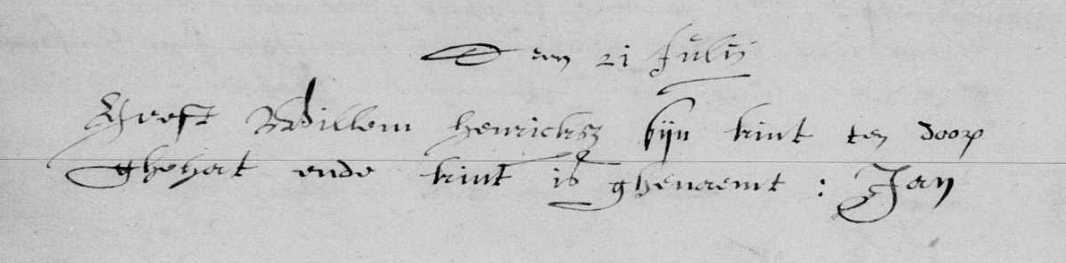 Den 21 Julij
Heeft Willem henricksz sijn kint ten doop
ghehat ende kint is ghenaemt : Jan